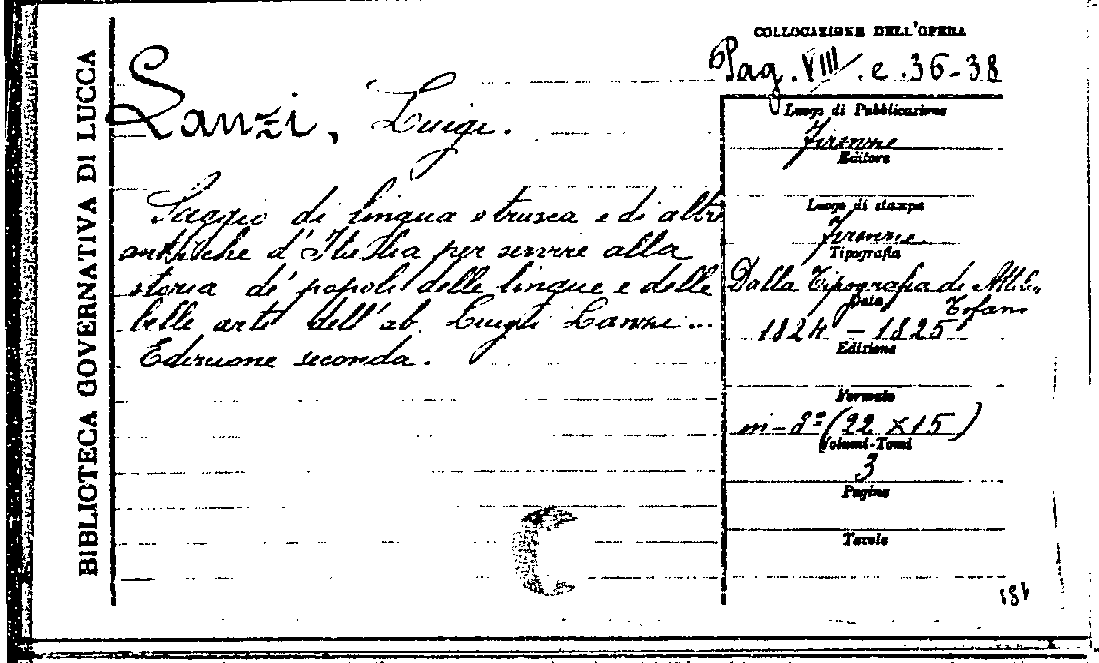 BIBLIOTECA GOVERNATIVA DI LUCCA
COLLOCAZIONE DELL'OPERA
Pag. VIII. e. 36-38
Lanzi, Luigi.
Saggio di lingua etrusca e di altre
antiche d'Italia per servire alla
storia de' popoli delle lingue e delle
belle arti dell'ab. Luigi Lanzi...
Edizione seconda.
Luogo di Pubblicazione
Firenze
Editore
Luogo di stampa
Firenze
Tipografia
Dalla Tipografia di Attilio
Tofani
Data
1824 - 1825
Edizione
Formato
in-8º (22 x 15)
Volumi-Tomi
3
Pagine
Tavole
181